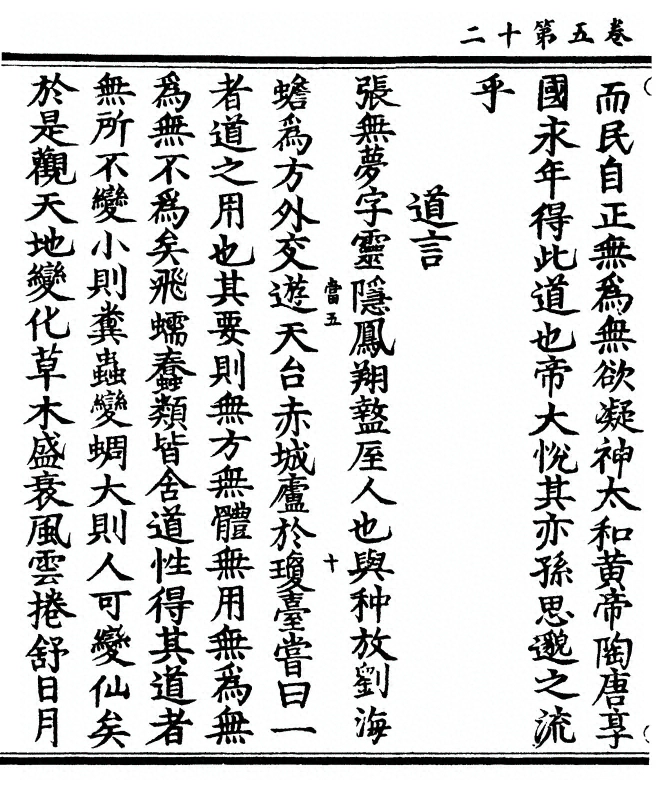 卷五第十二
而民自正無為無欲凝神太和黃帝陶唐享
國永年得此道也帝大悅其亦孫思邈之流
乎
道言
張無夢字靈隱鳳翔盩厔人也與种放劉海
蟾為方外交遊天台赤城廬於瓊臺嘗曰一
當五
十
者道之用也其要則無方無體無用無為無
為無不為矣飛蠕蠢類皆含道性得其道者
無所不變小則糞蟲變蜩大則人可變仙矣
於是觀天地變化草木盛衰風雲捲舒日月